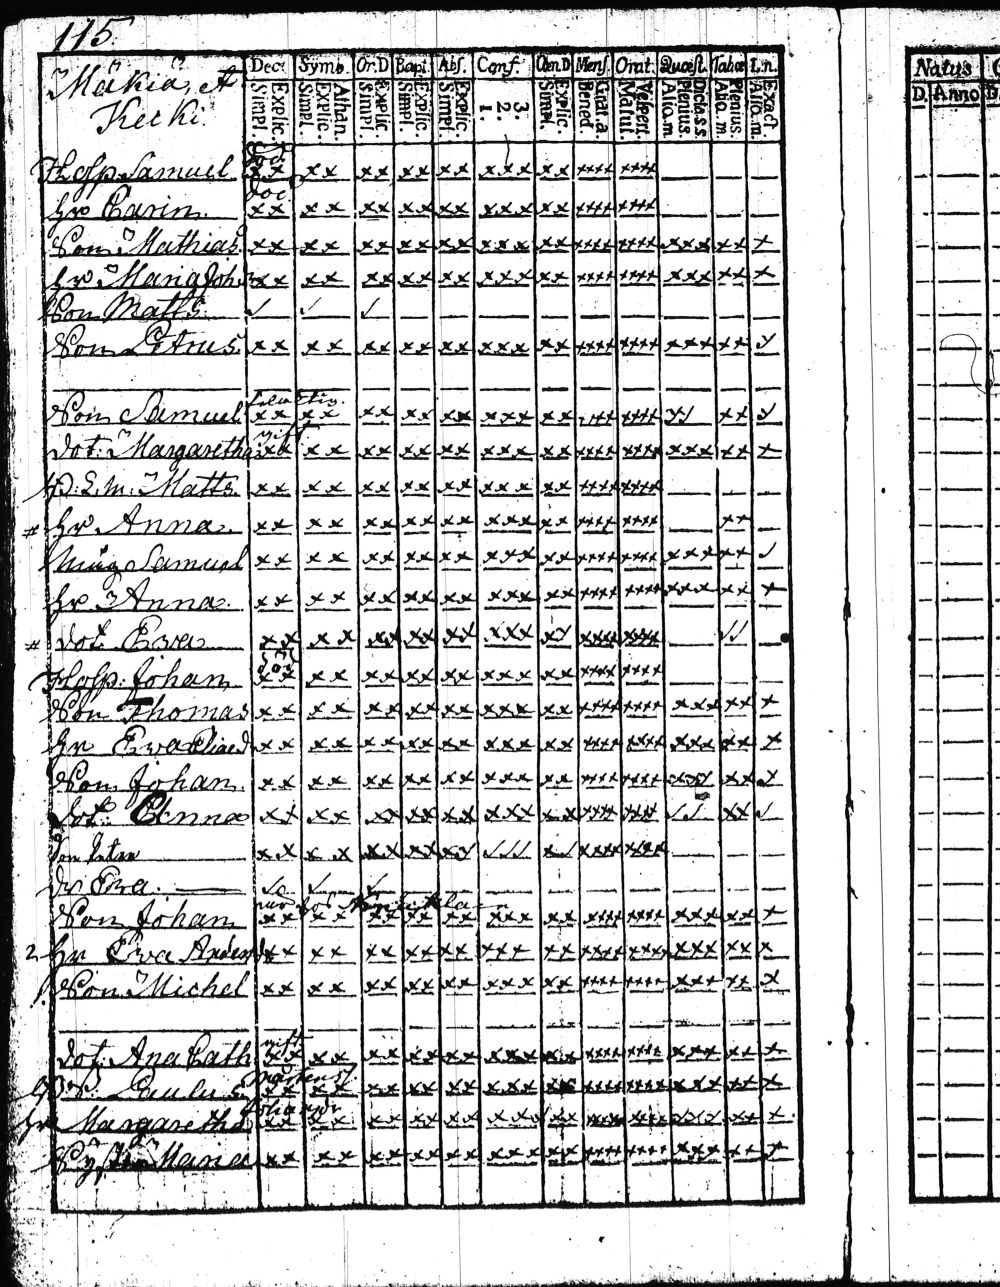 115.
Mäkiä, et
Kecki.
Dec. Symb. Or.D Bapt. Abs. Conf. Cœn.D Mens. Orat. Quæst. Tabœ L.n.
Simpl. Explic. Simpl. Explic. Athan. Simpl. Explic. Simpl. Explic. Simpl. Explic. 1. 2. 3. Simpl. Explic. Bened. Grat.a Matut. Vespert. Alio.m Plenius. Dicta.s.s. Alio.m Plenius. Alio.m. Exact.
Natus
D. Anno D.
Död.
Hosp. Samuel x x x x x x x x x x x x x x x xxxx xxxx
död
hr Carin. x x x x x x x x x x x x x x x xxxx xxxx
Son Mathias x x x x x x x x x x x x x x x xxxx xxxx x x x x x x
hr Maria Joh x x x x x x x x x x x x x x x xxxx xxxx x x x x x x
Son Matts
Son Petrus x x x x x x x x x x x x x x x xxxx xxxx x x x x x
Son Samuel x x x x x x x x x x x x x x x xxxx x x
gift
dot. Margaretha x x x x x x x x x x x x x x x xxxx xxxx x x x x x x
Matts x x x x x x x x x x x x x x x xxxx xxxx
# hr Anna. x x x x x x x x x x x x x x x xxxx xxxx x x
Måg Samuel x x x x x x x x x x x x x x x xxxx xxxx x x x x x
hr Anna. x x x x x x x x x x x x x x x xxxx xxxx x x x x x x
# dot. Ewa x x x x x x x x x x x x x x xxxx xxxx
död
Hosp. Johan x x x x x x x x x x x x x x x xxxx xxxx
Son Thomas x x x x x x x x x x x x x x x xxxx xxxx x x x x x x
hr Ewa x x x x x x x x x x x x x x x xxxx xxxx x x x x x x
Son Johan x x x x x x x x x x x x x x x xxxx xxxx x x
dot. Anna x x x x x x x x x x x x x x x xxxx xxxx x x
x x x x x x x x x xxxx xxxx
Ewa.
Son Johan x x x x x x x x x x x x x x x xxxx xxxx x x x x x x
2 hr Ewa Anders x x x x x x x x x x x x x x x xxxx xxxx x x x x x x
Son Michel x x x x x x x x x x x x x x x xxxx xxxx x x x x x x
gift
dot. Ana Cath x x x x x x x x x x x x x x x xxxx xxxx x x x x x x
Paulus x x x x x x x x x x x x x x x xxxx xxxx x x x x x x
hr Margaretha x x x x x x x x x x x x x x x xxxx xxxx x x x x x x
Maria x x x x x x x x x x x x x x x xxxx xxxx x x x x x x